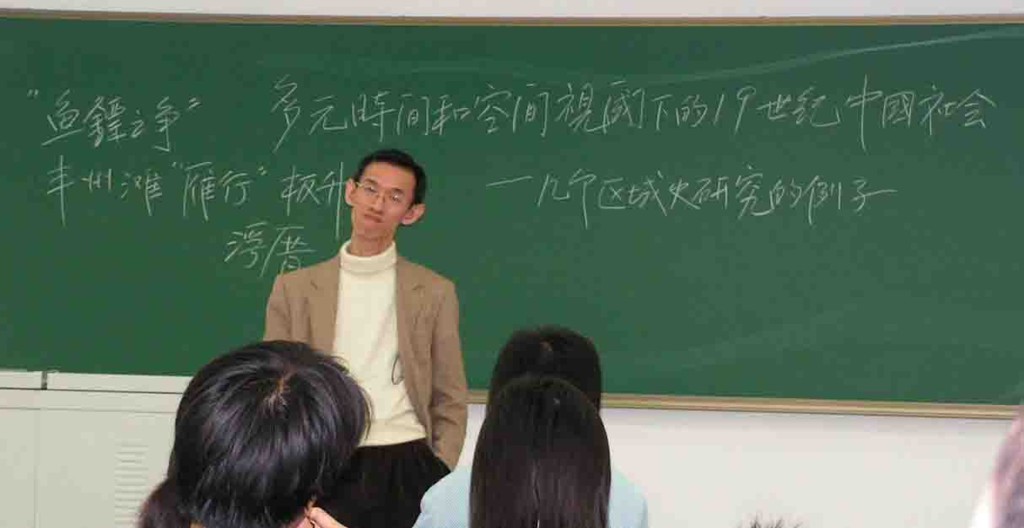 "鱼鐔之争" 多元時间和空间視阈下的19世纪中國社会
丰州滩"雁行" 板升 一几个区域史研究的例子
浮厝